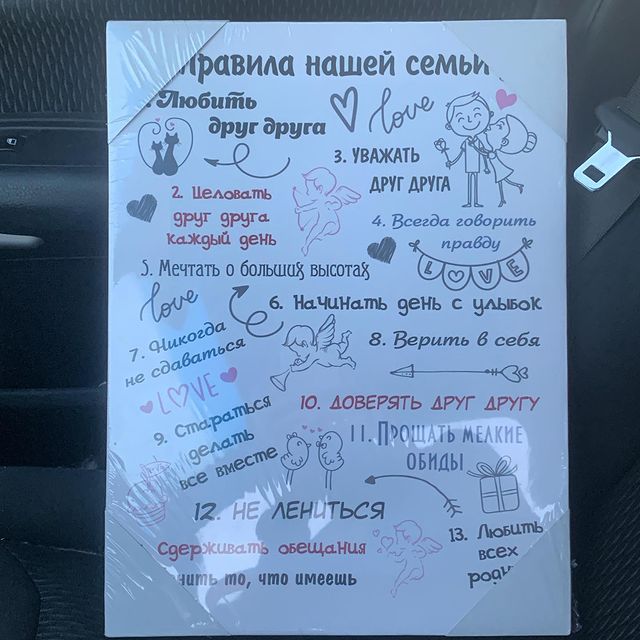 Правила нашей семьи
Любить
друг друга
love
3. УВАЖАТЬ
ДРУГ ДРУГА
2. Целовать
друг друга
каждый день
4. Всегда говорить
правду
LOVE
5. Мечтать о больших высотах
love
6. Начинать день с улыбок
7. Никогда
не сдаваться
8. Верить в себя
LOVE
10. ДОВЕРЯТЬ ДРУГ ДРУГУ
9. Стараться
делать
все вместе
11. Прощать мелкие
обиды
12. НЕ ЛЕНИТЬСЯ
13. Любить
всех
Сдерживать обещания
то, что имеешь